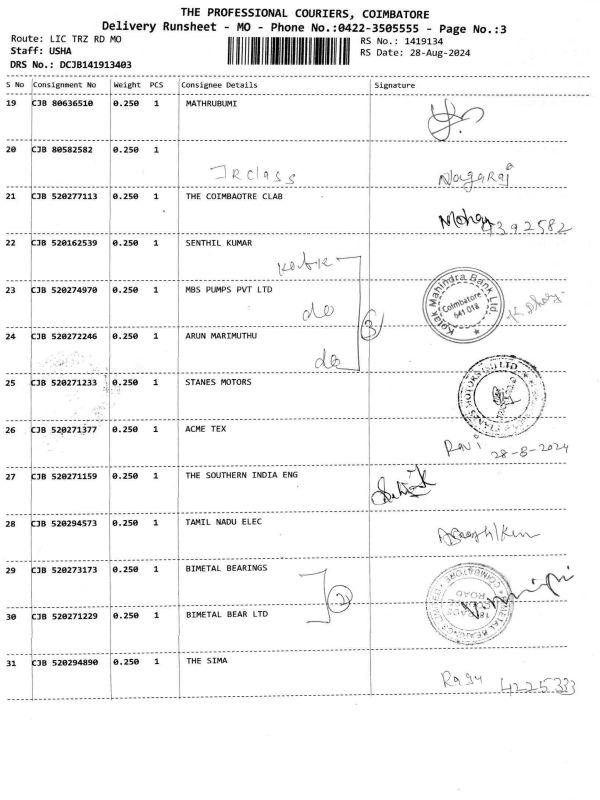 THE PROFESSIONAL COURIERS, COIMBATORE
Delivery Runsheet - MO - Phone No.:0422-3505555 - Page No.:3
Route: LIC TRZ RD MO
RS No.: 1419134
Staff: USHA
RS Date: 28-Aug-2024
DRS No.: DCJB141913403
S No Consignment No Weight PCS Consignee Details Signature
19 CJB 80636510 0.250 1 MATHRUBUMI
20 CJB 80582582 0.250 1
JR class Nagaraj
21 CJB 520277113 0.250 1 THE COIMBAOTRE CLAB
Mohan 4392582
22 CJB 520162539 0.250 1 SENTHIL KUMAR
kotak
23 CJB 520274970 0.250 1 MBS PUMPS PVT LTD
do 3
Kotak Mahindra Bank Ltd
Coimbatore
641 018
24 CJB 520272246 0.250 1 ARUN MARIMUTHU
do
25 CJB 520271233 0.250 1 STANES MOTORS
26 CJB 520271377 0.250 1 ACME TEX
Ravi 28-8-2024
27 CJB 520271159 0.250 1 THE SOUTHERN INDIA ENG
28 CJB 520294573 0.250 1 TAMIL NADU ELEC
29 CJB 520273173 0.250 1 BIMETAL BEARINGS
2
30 CJB 520271229 0.250 1 BIMETAL BEAR LTD
31 CJB 520294890 0.250 1 THE SIMA
Ragu 4225333